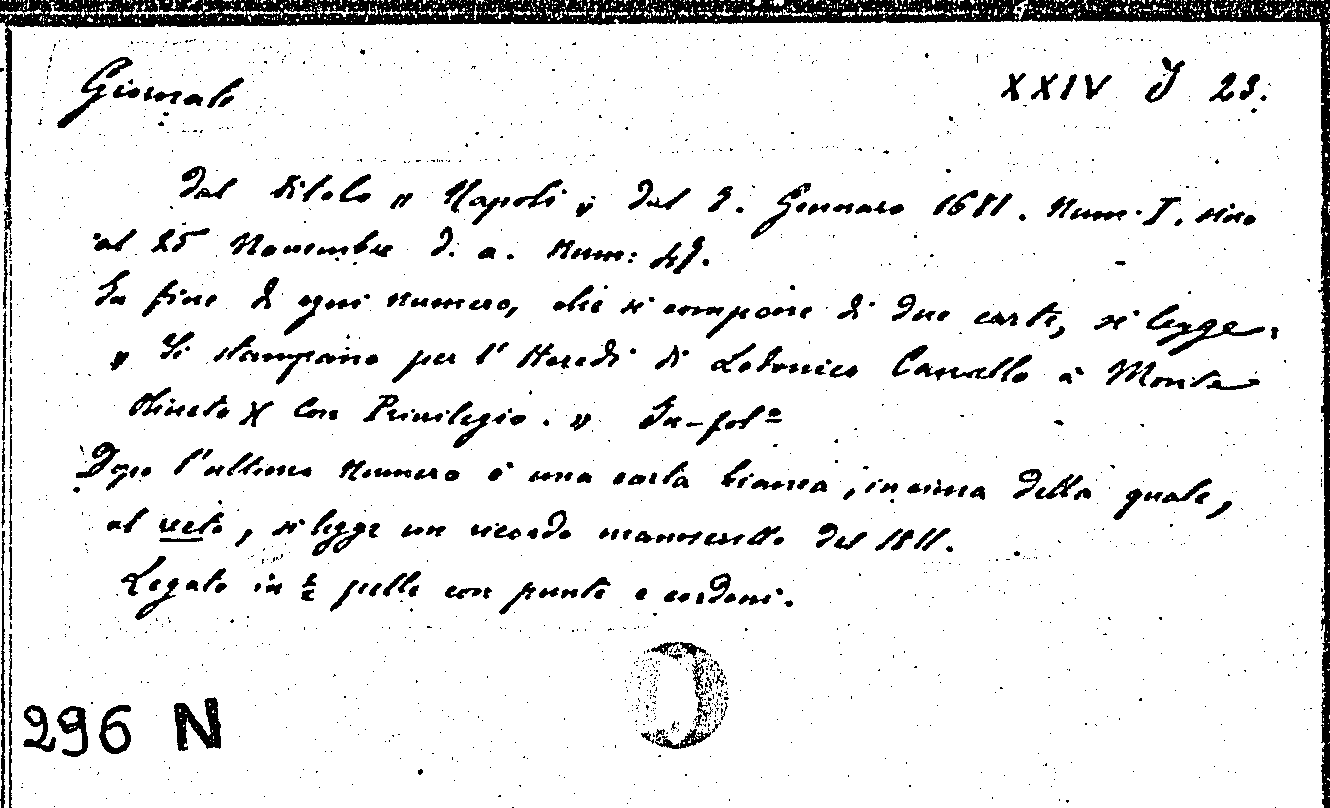 Giornale
XXIV I 23.
Dal titolo " Napoli " dal 2. Gennaro 1681. Num. I. sino
al 25 Novembre d. a. Num: 47.
In fine di ogni numero, che si compone di due carte, si legge:
" Si stampano per l' Heredi di Lodovico Cavallo à Monte
Oliueto X Con Privilegio. " In-folº
Dopo l'ultimo numero è una carta bianca, in cima della quale,
al recto, si legge un ricordo manoscritto del 1811.
Legato in ½ pelle con punte e cordoni.
296 N